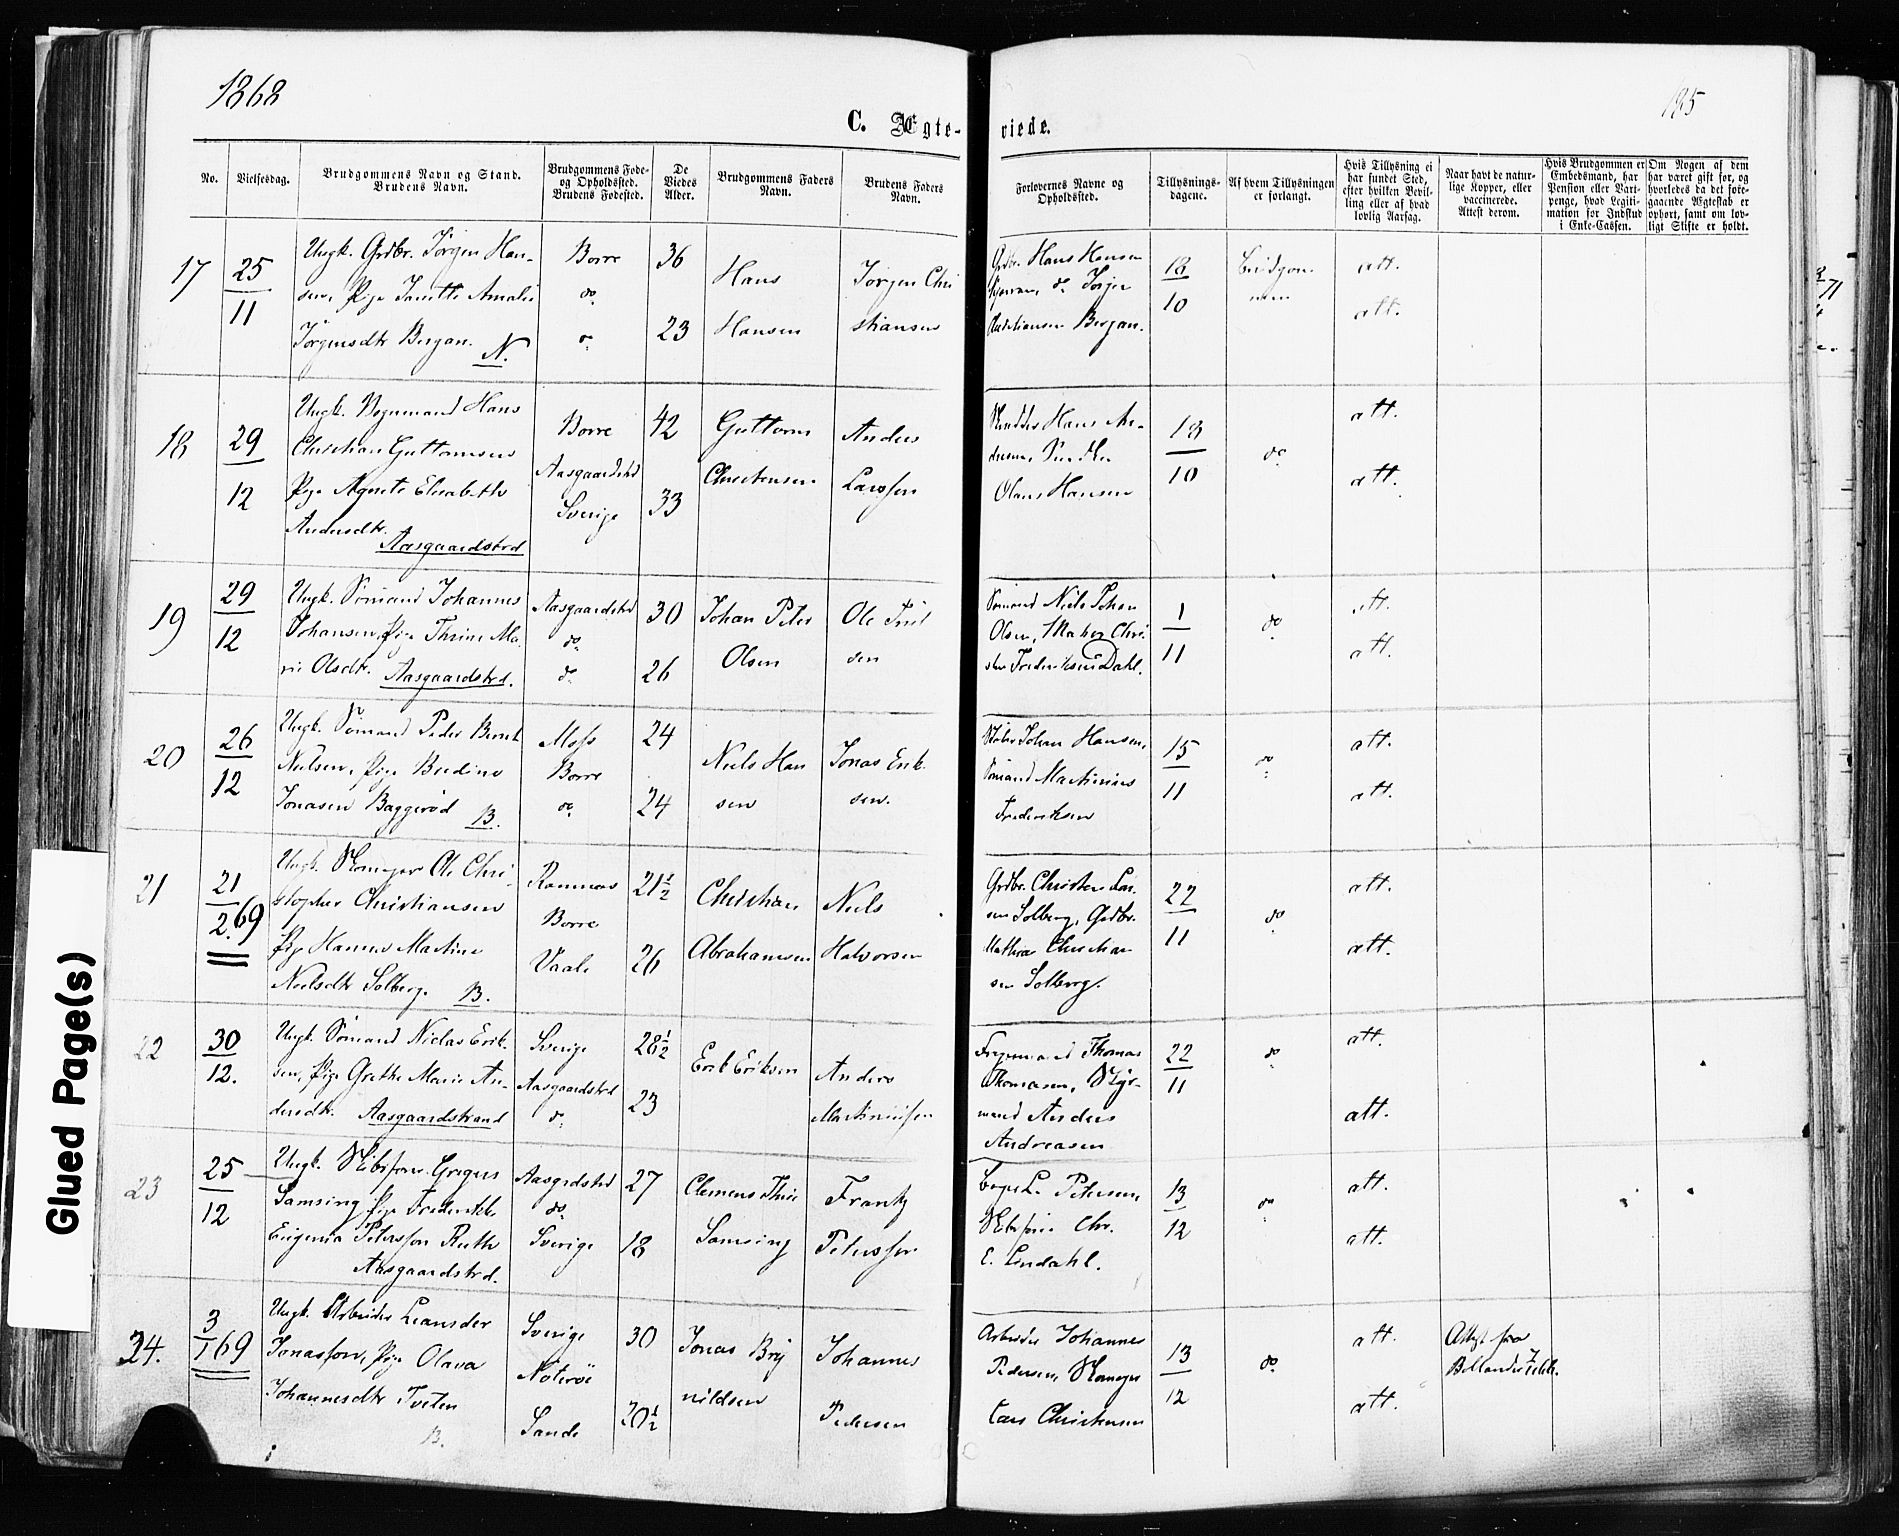 1868
185
C. Ægte-
viede.
No.
Vielsesdag.
Brudgommens Navn og Stand.
Brudens Navn.
Brudgommens Føde-
og Opholdssted.
Brudens Fødested.
De
Viedes
Alder.
Brudgommens Faders
Navn.
Brudens Faders
Navn.
Forlovernes Navne og
Opholdssted.
Tillysnings-
dagene.
Af hvem Tillysningen
er forlangt.
Hvis Tillysning ei
har fundet Sted,
efter hvilken Bevil-
ling eller af hvad
lovlig Aarsag.
Naar havt de natur-
lige Kopper, eller
vaccinerede.
Attest derom.
Hvis Brudgommen er
Embedsmand, har
Pension eller Vart-
penge, hvad Legiti-
mation for Indskud
i Enke-Cassen.
Om Nogen af dem
har været gift før, og
hvorledes da det fore-
gaaende Ægteskab er
ophørt, samt om lov-
ligt Skifte er holdt.
17
25
11
Ungk. Grdbr. Jørgen Han-
sen, Pige Janette Amalie
Jørgensdtr Bergan. N.
Borre
do
do
36
23
Hans
Hansen
Jørgen Chri
stiansen
Grdbr. Hans Hansen
do Jørgen
Christiansen Bergan.
18
10
Brudgom-
men
att.
att.
18
29
12
Ungk. Vognmand Hans
Christian Guttormsen
Pige Agnete Elisabeth
Andersdtr.
Aasgaardstrd
Borre
Aasgaardstrd
Sverige
42
33
Guttorm
Christensen
Anders
Larssen
Hans An-
dersen,
Olaus Hansen
18
10
do
att.
att.
19
29
12
Ungk. Sømand Johannes
Johansen, Pige Thrine Ma-
rie Olsdtr. Aasgaardstrd.
Aasgaardstrd
do
do
30
26
Johan Peter
Olsen
Ole Juel
sen
Sømand Niels Johan
Olsen, Chri-
sten Frederiksen Dahl.
1
11
do
att.
att.
20
26
12
Ungk. Sømand Peder Bernt
Nielsen, Pige Bredine
Jonasen Baggerød B.
Moss
Borre
do
24
24
Niels Han
sen
Jonas Erik
sen.
Johan Hansen,
Sømand Martinius
Frederiksen
15
11
do
att.
att.
21
21
2.69
Ungk. Skomager Ole Chri-
stopher Christiansen
Pige Hanna Martine
Nielsdtr Solberg. B.
Ramnæs
Borre
Vaale
21½
26
Christian
Abrahamsen
Niels
Halvorsen
Grdbr. Christen Lar-
sen Solberg, Grdbr.
Mathias Christian
sen Solberg.
22
11
do
att.
att.
22
30
12.
Ungk. Sømand Niclas Erik-
sen, Pige Grethe Marie An-
dersdtr. Aasgaardstrand
Sverige
Aasgaardstrd
do
28½
23
Erik Eriksen
Anders
Martiniussen
Thomas
Thomasen, Styr-
mand Anders
Andreasen
22
11
do
att.
att.
23
25
12
Ungk. Skibsfører Gregers
Samsing Pige Frederikke
Eugenia Petersson Ruth
Aasgaardstrd.
Aasgrdstrd
do
Sverige
27
18
Clemens Thue
Samsing
Frantz
Petersson
L. Petersen,
Skibsfører Chr.
E. Lindahl.
13
12
do
att.
att.
24.
3
1 69
Ungk. Arbeider Leander
Jonasson, Pige Olava
Johannesdtr Tveten
B.
Sverige
Nøterøe
Sande
30
20½
Jonas Bry
nildsen
Johannes
Pedersen
Arbeider Johannes
Pedersen, Skomager
Lars Christensen
13
12
do
att.
att.
Attest fra
Glued Page(s)